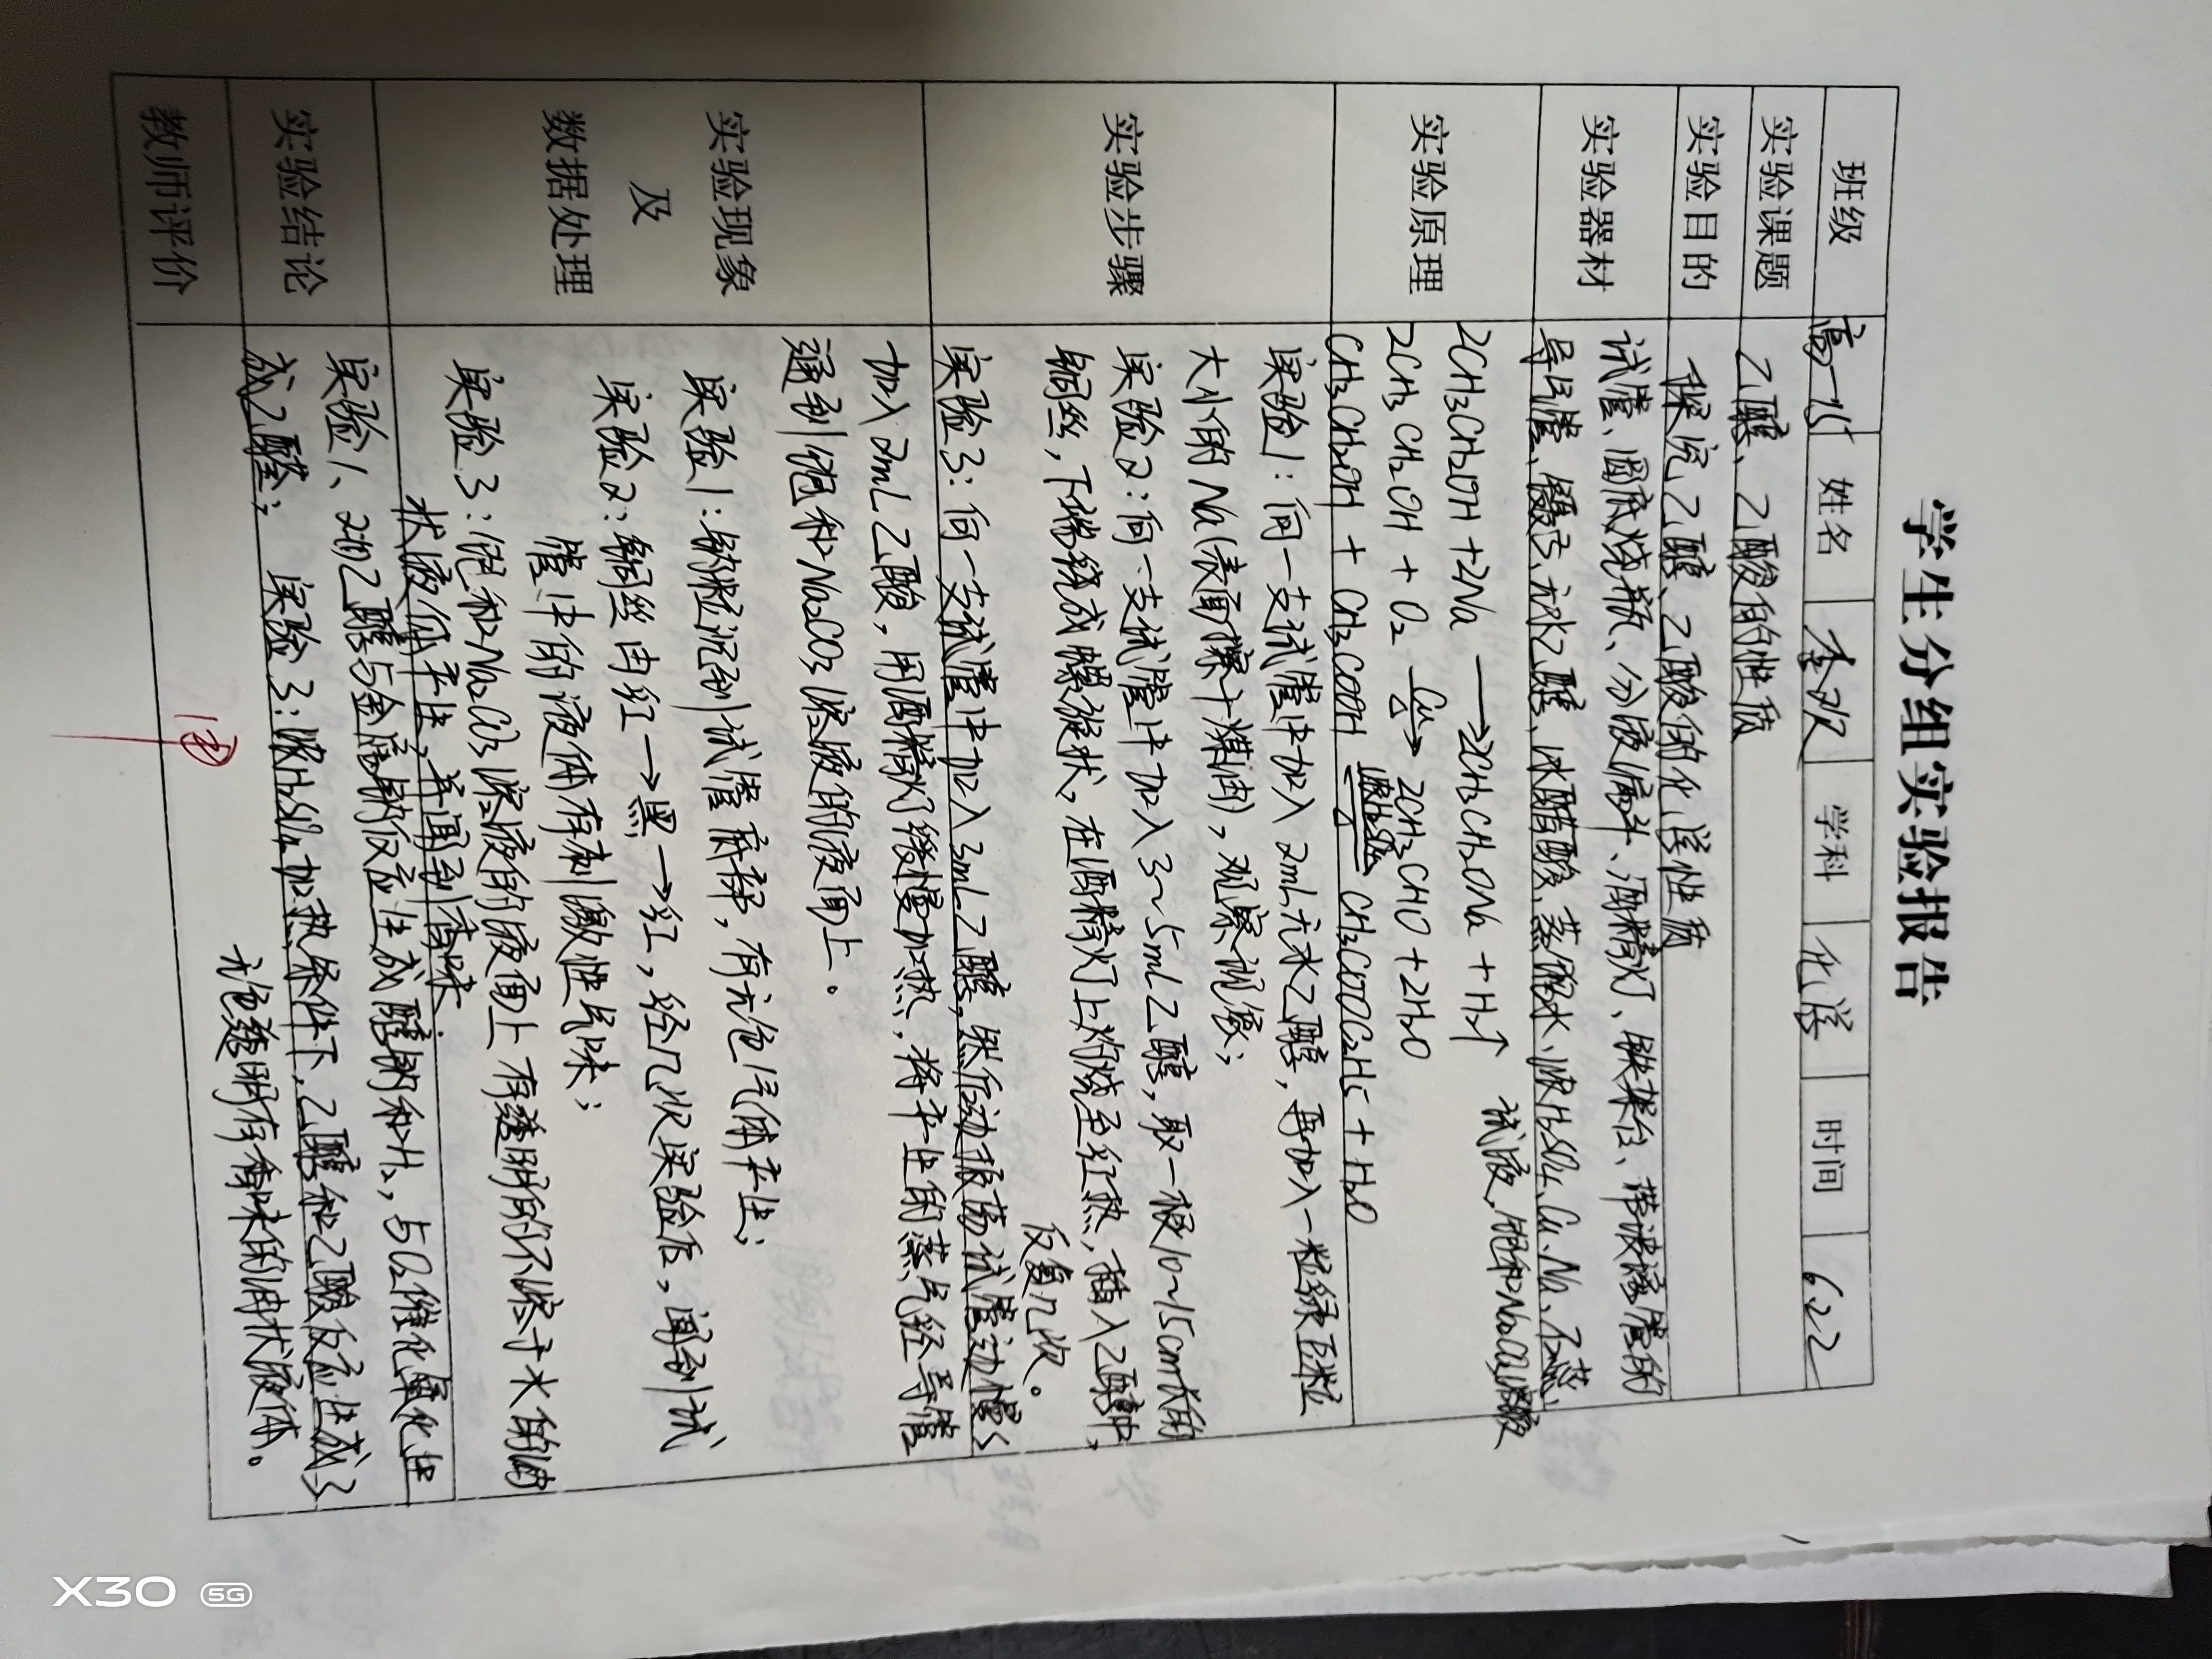 学生分组实验报告
班级 高一15 姓名 李欢 学科 化学 时间 6.22
实验课题 乙醇、乙酸的性质
实验目的 探究乙醇、乙酸的化学性质
实验器材 试管、圆底烧瓶、分液漏斗、酒精灯、铁架台、带玻璃管的
导气管、镊子、无水乙醇、冰醋酸、蒸馏水、浓H₂SO₄、Cu、Na、石蕊
试液、饱和Na₂CO₃溶液
实验原理 2CH₃CH₂OH +2Na ⟶2CH₃CH₂ONa + H₂↑
2CH₃CH₂OH + O₂ Cu→△ 2CH₃CHO +2H₂O
CH₃CH₂OH + CH₃COOH 浓H₂SO₄⇌△ CH₃COOC₂H₅ + H₂O
实验步骤 实验1：向一支试管中加入2mL无水乙醇，再加入一粒绿豆粒
大小的Na(表面擦干煤油)，观察现象；
实验2：向一支试管中加入3~5mL乙醇，取一根10~15cm长的
铜丝，下端绕成螺旋状，在酒精灯上灼烧至红热，插入乙醇中，
反复几次。
实验3：向一支试管中加入3mL乙醇，然后边振荡试管边慢慢
加入2mL乙酸，用酒精灯缓慢加热，将产生的蒸气经导管
通到饱和Na₂CO₃溶液的液面上。
实验现象
及
数据处理
实验1：钠粒沉到试管底部，有无色气体产生；
实验2：铜丝由红→黑→红，经几次实验后，闻到试
管中的液体有刺激性气味；
实验3：饱和Na₂CO₃溶液的液面上有透明的不溶于水的油
状液体产生，并闻到香味。
实验结论 实验1、2的乙醇与金属钠反应生成醇钠和H₂，与O₂催化氧化生
成乙醛； 实验3：浓H₂SO₄加热条件下，乙醇和乙酸反应生成了
无色透明有香味的油状液体。
教师评价
X30 5G